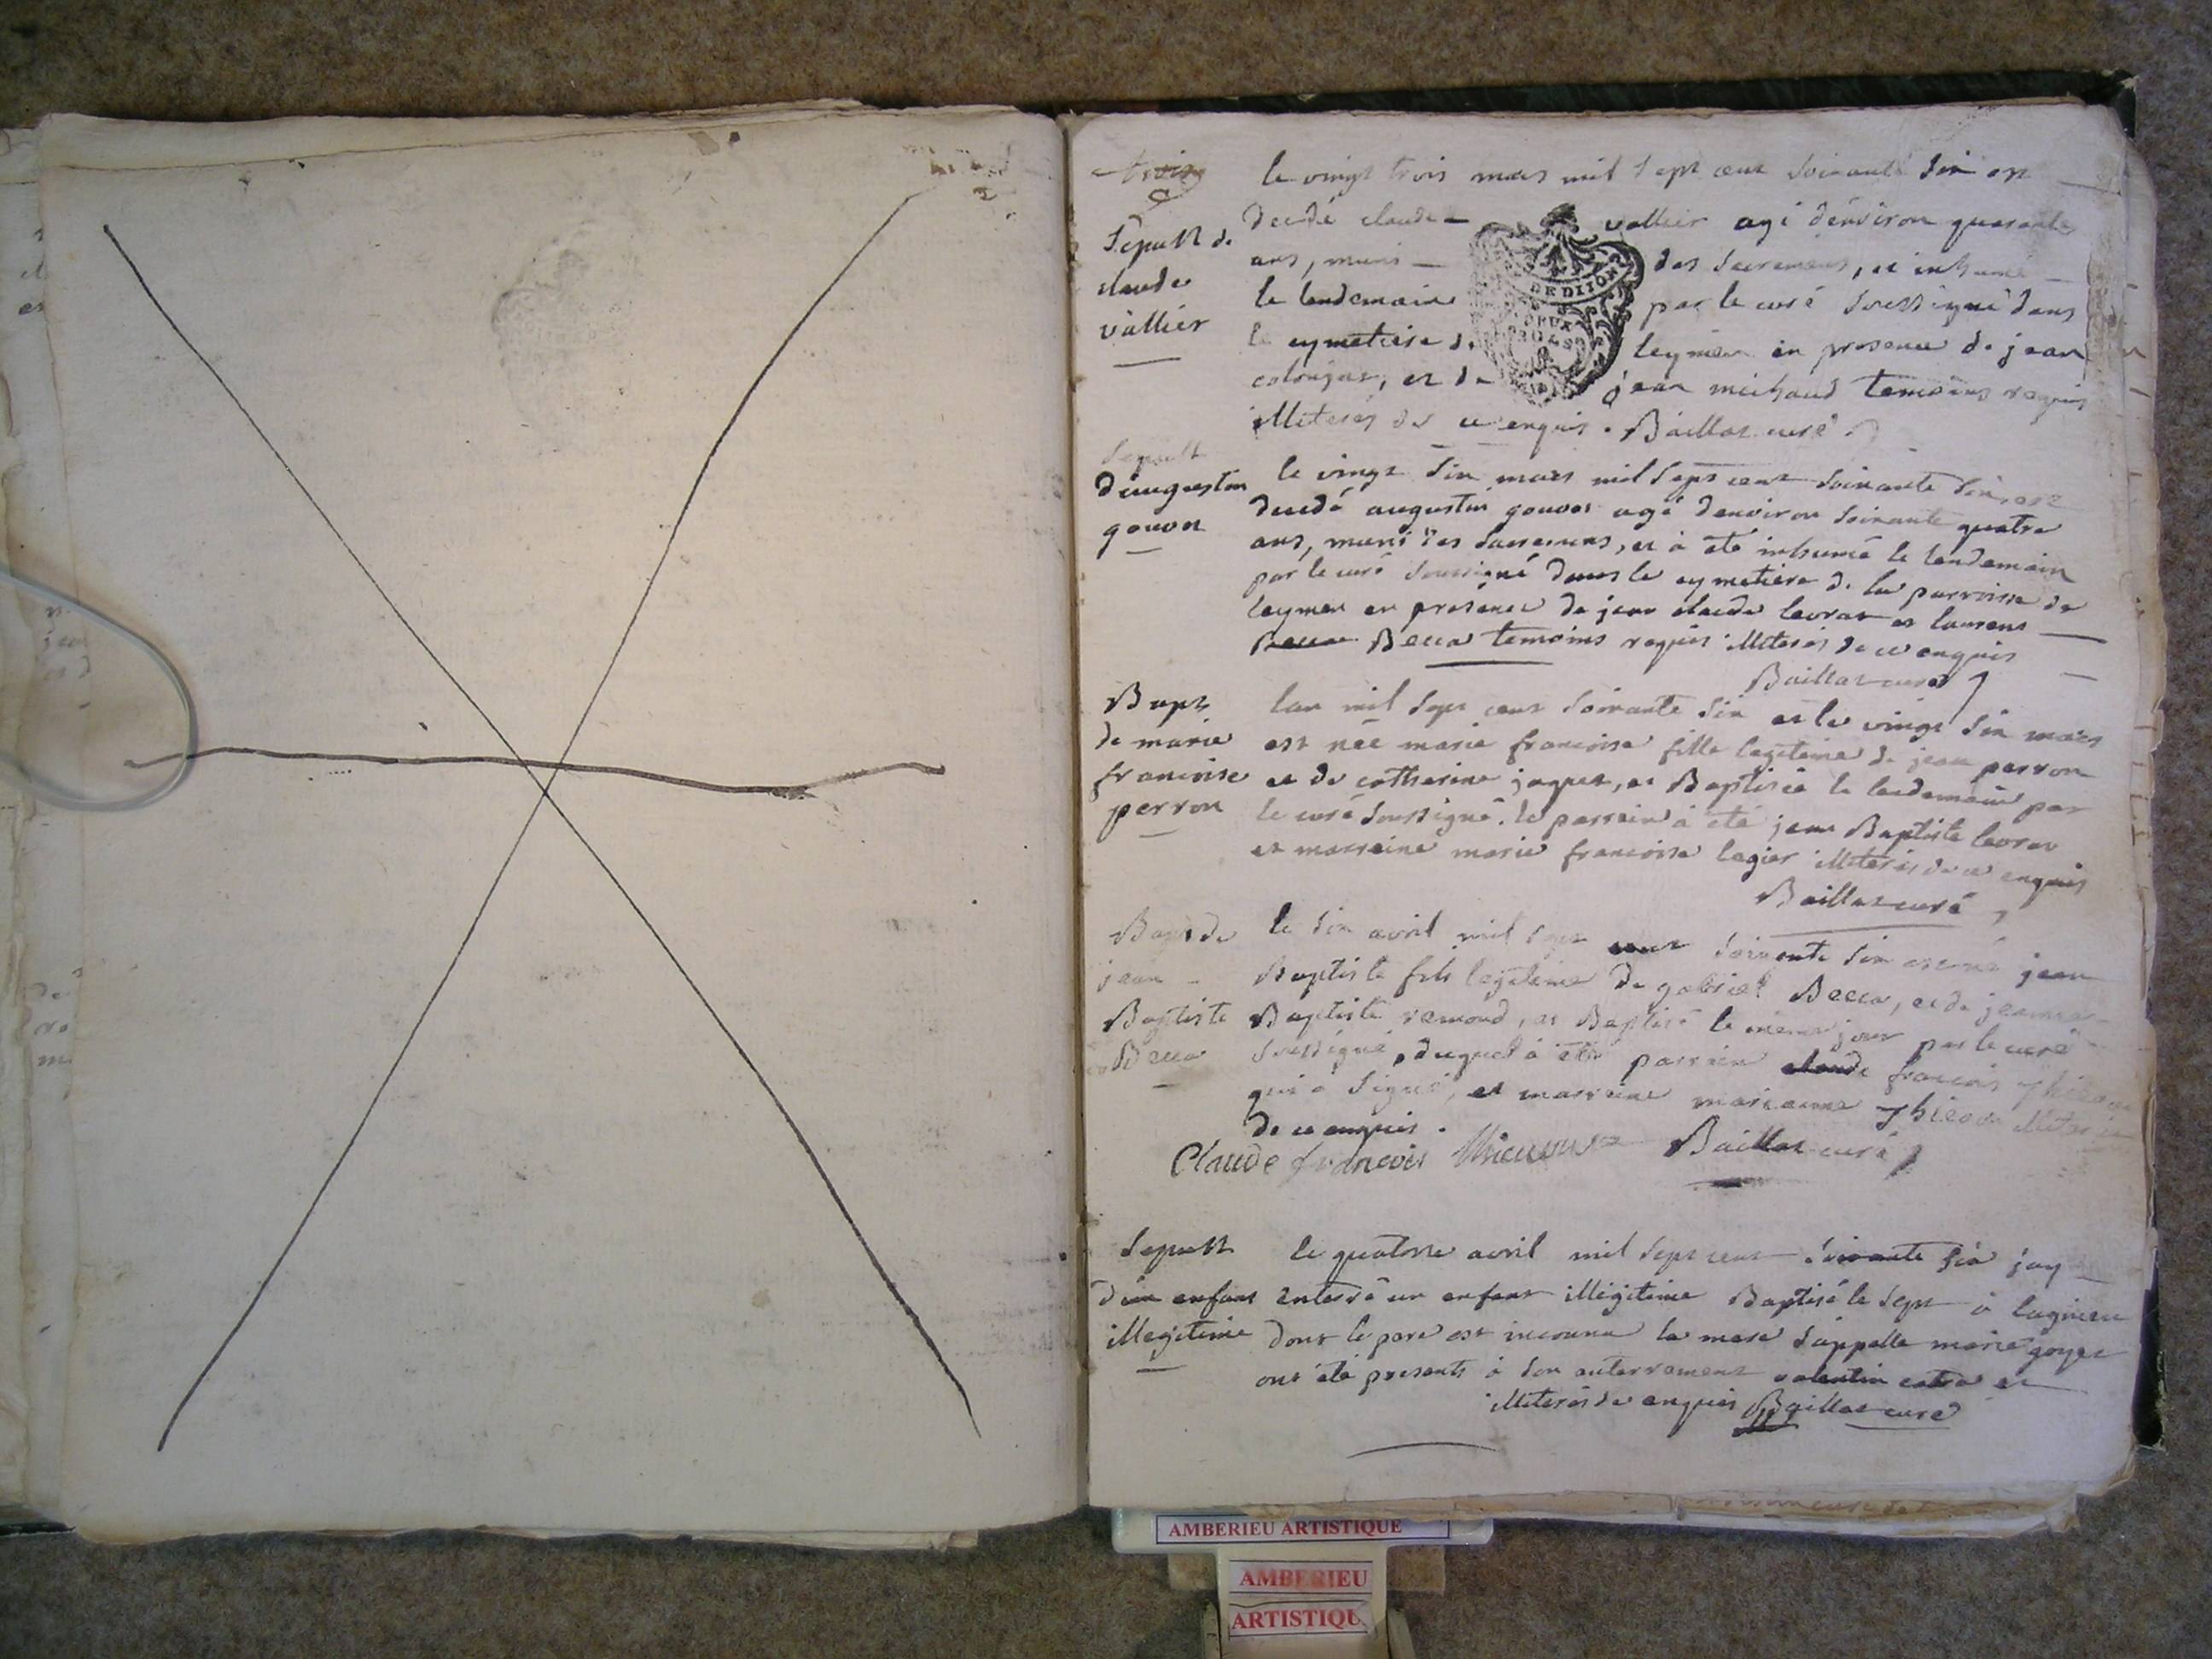 trois
Sepult de
claude
vallier
le vingt trois mars mil sept cent soixante six est
decedé claude vallier agé d'environ quarante
ans, muni des sacremens, et inhumé
le lendemain par le curé soussigné dans
le cymetiere de leymen en presence de jean
et de jean michaud temoins requis
illiterés de ce enquis. Baillat curé
DE DIJON
DEUX
SOLS
Sepult
d'augustin
gouvon
le vingt six mars mil sept cent soixante six, est
decedé augustin gouvon agé d'environ soixante quatre
ans, muni des sacremens, et à eté inhumé le lendemain
par le curé soussigné dans le cymetiere de la parroisse de
leymen en presence de jean claude levrat et laurens
Becca temoins requis illiterés de ce enquis
Baillat curé
Bapt
de marie
francoise
perron
lan mil sept cent soixante six et le vingt six mars
est née marie francoise fille legitime de jean perron
et de catherine jaquet, et Baptisée le lendemain par
le curé soussigné. le parrain à eté jean Baptiste levrat
et marraine marie francoise legier illiterés de ce enquis
Baillat curé
Bapt de
jean
Baptiste
Becca
le six avril mil sept cent soixante six est né jean
Baptiste fils legitime de gabriel Becca, et de jeanne
Baptiste remond, et Baptisé le meme jour par le curé
soussigné, duquel à eté parrain claude francois
qui à signé, et marraine marianne
de ce enquis.
Claude francois Baillat curé
Sepult
d'un enfant
illegitime
le quatorze avril mil sept cent soixante six jay
enterré un enfant illegitime Baptisé le sept à lagnieu
dont le pere est inconnu la mere s'appelle marie goyet
ont eté presents à son enterrement valentin et
illiterés de enquis Baillat curé
AMBERIEU ARTISTIQUE
AMBERIEU
ARTISTIQU